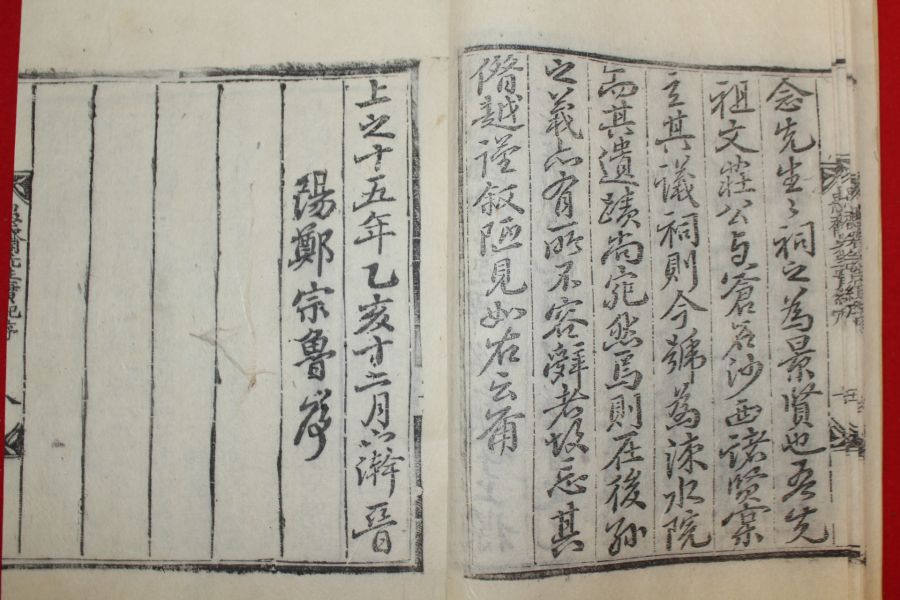 念先生之祠之為景賢也吾先
祖文莊公与蒼石沙西諸賢寔
主其議祠則今號為涑水院
而其遺蹟尚宛然焉則在後孫
之義亦有所不容辭者故忘其
僭越謹叙陋見如右云爾
上之十五年乙亥十二月下澣晉
陽鄭宗魯序